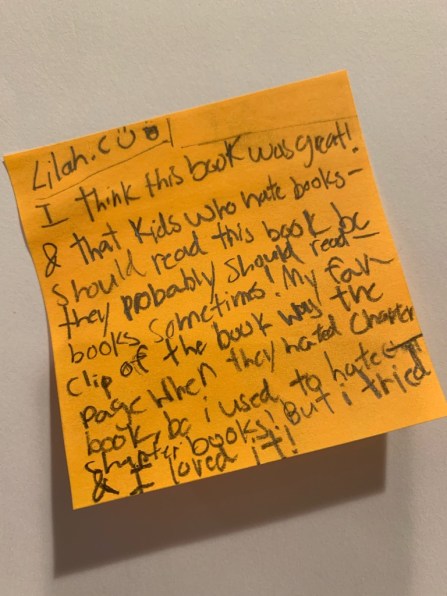 Lilah.C
I think this book was great!
& that kids who hate books
should read this book bc
they probably should read
books sometimes! My fav
clip of the book was the
page when they hated chapter
book, bc i used to hate
chapter books! But i tried
& I loved it!